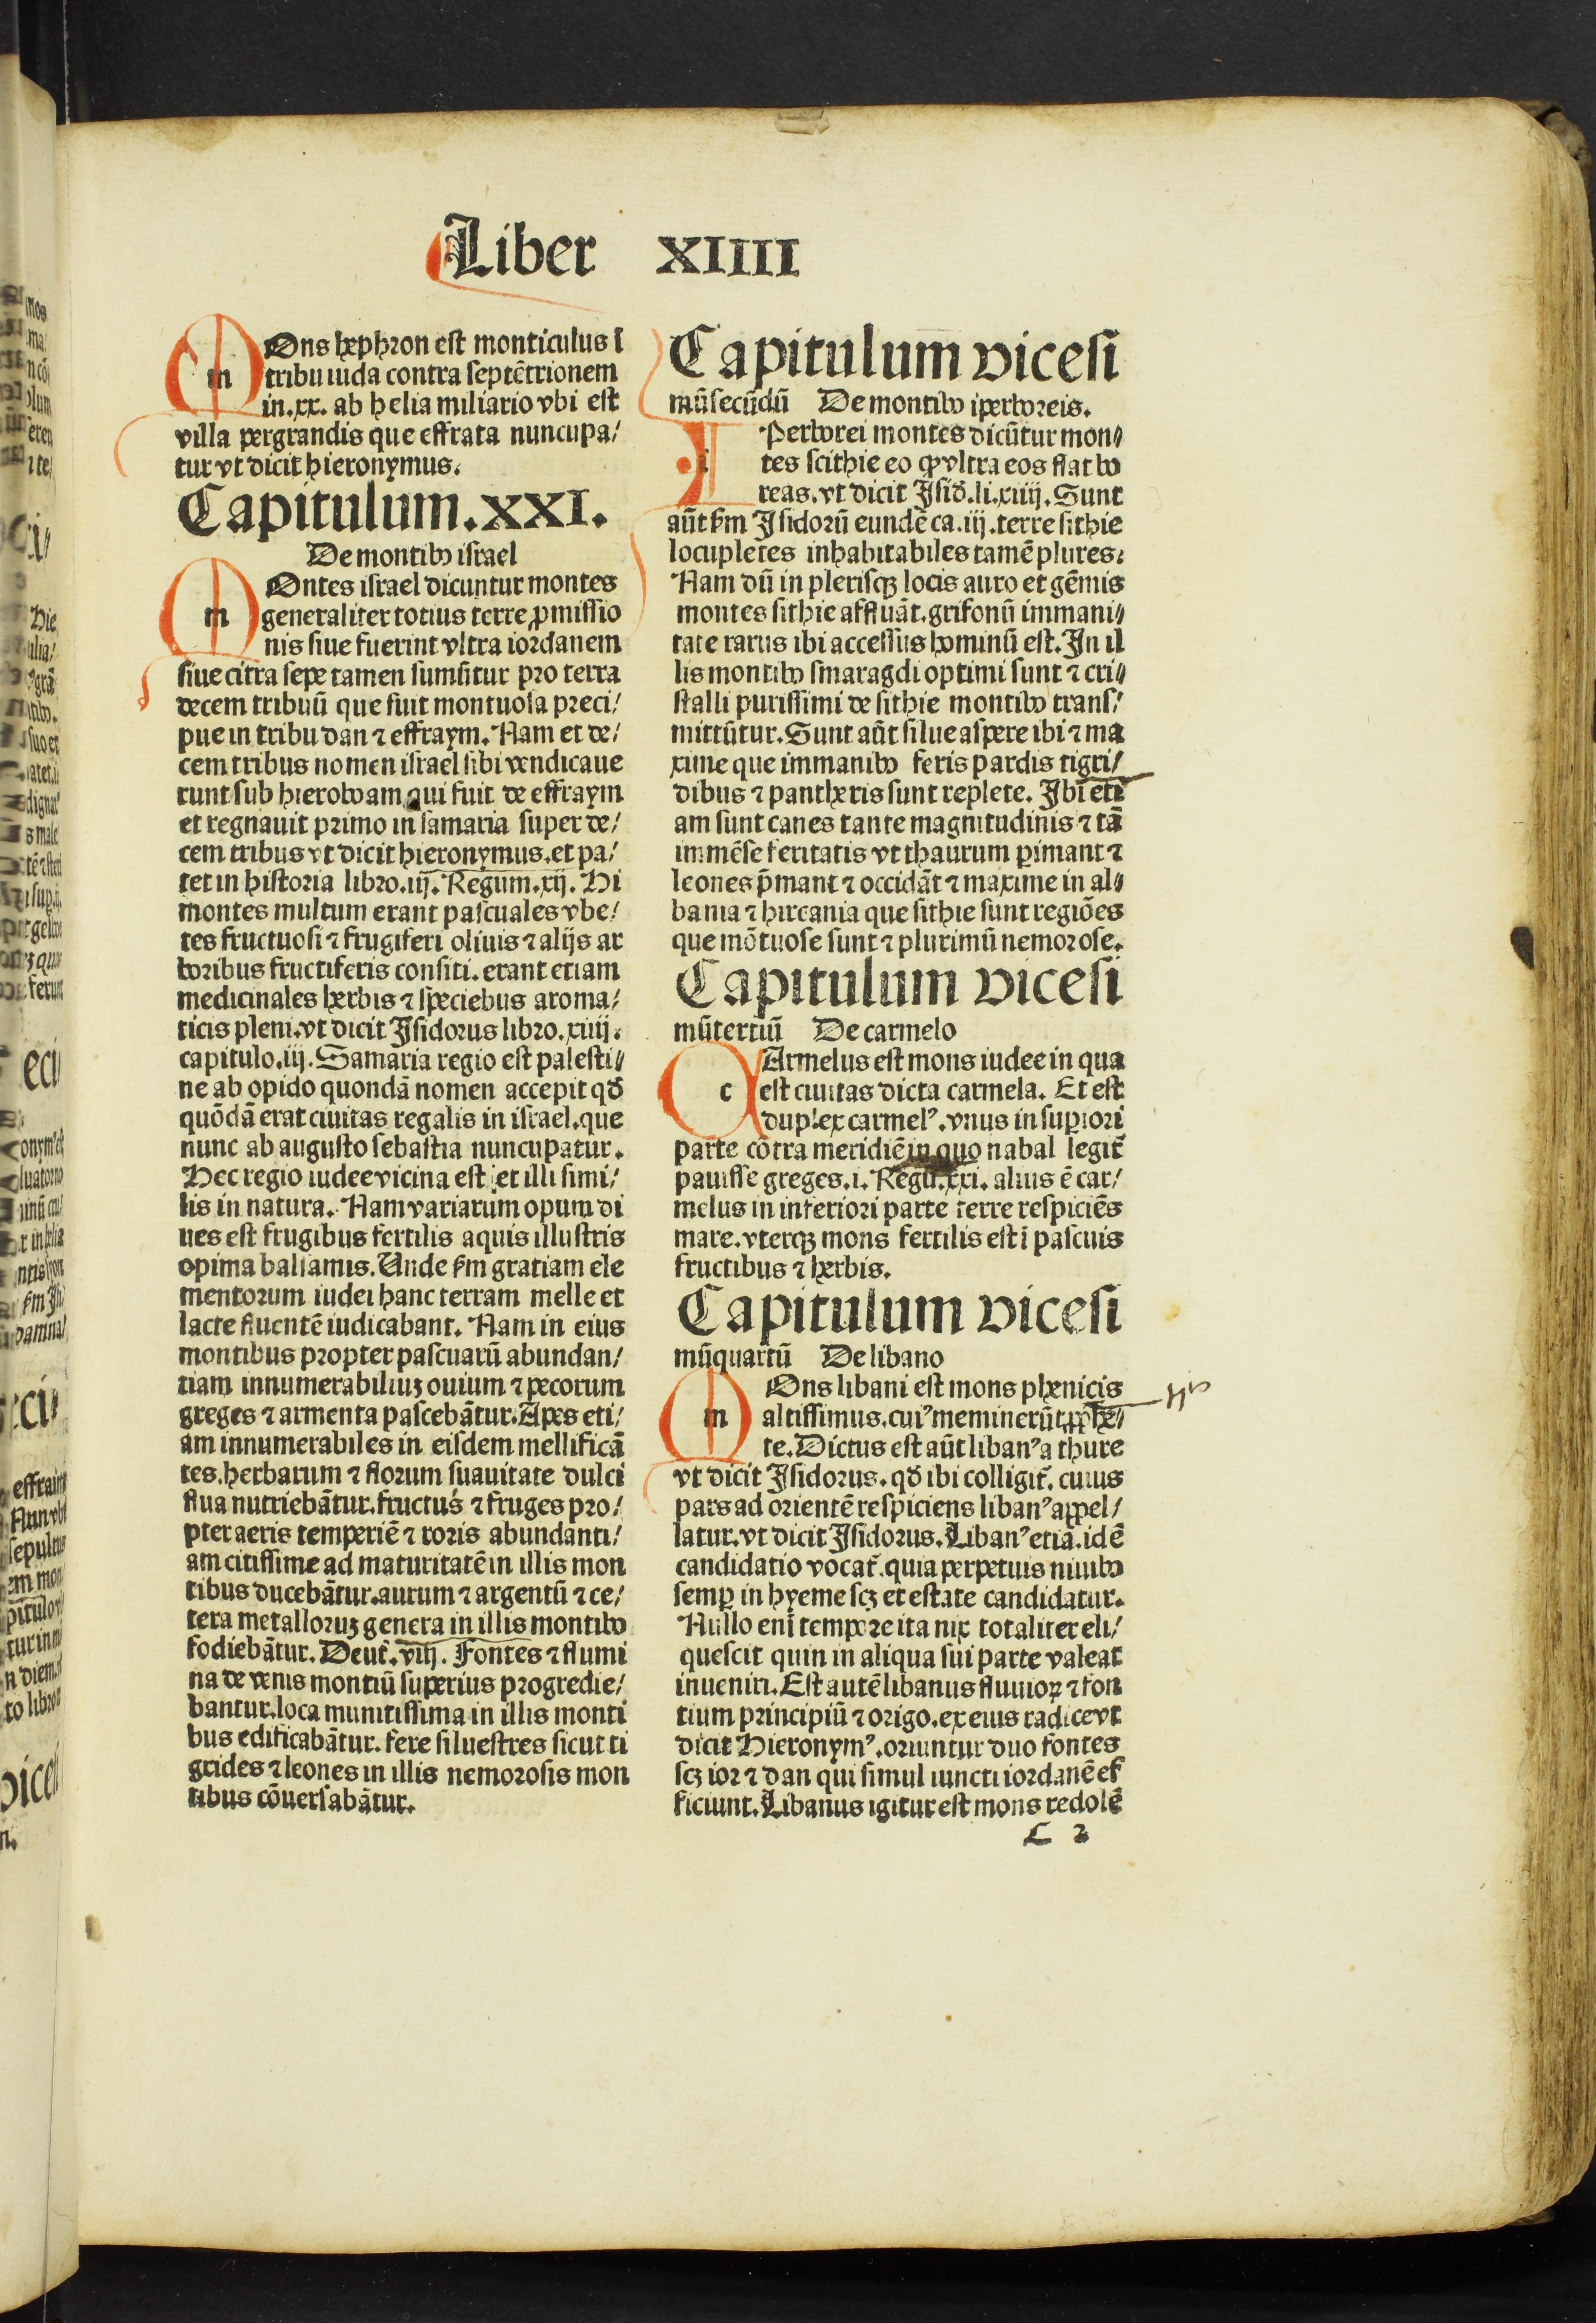 Liber XIIII
MOns hephron est monticulus ī
tribu iuda contra septētrionem
in .xx. ab helia miliario vbi est
villa pergrandis que effrata nuncupa/
tur vt dicit hieronymus.
Capitulum .XXI.
De montibꝰ israel
MOntes israel dicuntur montes
generaliter totius terre ꝓmissio
nis siue fuerint vltra iordanem
siue citra sepe tamen sumitur pro terra
decem tribuū que fuit montuosa preci/
pue in tribu dan ⁊ effraym. Nam et de/
cem tribus nomen israel sibi vendicaue
runt sub hieroboam qui fuit de effraym
et regnauit primo in samaria super de/
cem tribus vt dicit hieronymus. et pa/
tet in historia libro .iij. Regum .xij. Hi
montes multum erant pascuales vbe/
res fructuosi ⁊ frugiferi oliuis ⁊ alijs ar
boribus fructiferis consiti. erant etiam
medicinales herbis ⁊ speciebus aroma/
ticis pleni. vt dicit Isidorus libro .xiiij.
capitulo .iij. Samaria regio est palesti//
ne ab opido quondā nomen accepit qđ
quōdā erat ciuitas regalis in israel. que
nunc ab augusto sebastia nuncupatur.
Hec regio iudee vicina est et illi simi/
lis in natura. Nam variarum opum di
ues est frugibus fertilis aquis illustris
opima balsamis. Unde ẜm gratiam ele
mentorum iudei hanc terram melle et
lacte fluentē iudicabant. Nam in eius
montibus propter pascuarū abundan/
tiam innumerabiliuꝫ ouium ⁊ pecorum
greges ⁊ armenta pascebātur. Apes eti/
am innumerabiles in eisdem mellificā
tes. herbarum ⁊ florum suauitate dulci
flua nutriebātur. fructus ⁊ fruges pro/
pter aeris temperiē ⁊ roris abundanti/
am citissime ad maturitatē in illis mon
tibus ducebātur. aurum ⁊ argentū ⁊ ce/
tera metalloruꝫ genera in illis montibꝰ
fodiebātur. Deut̄. viij. Fontes ⁊ flumi
na de venis montiū superius progredie/
bantur. loca munitissima in illis monti
bus edificabātur. fere siluestres sicut ti
grides ⁊ leones in illis nemorosis mon
tibus cōuersabātur.
Capitulum vicesi
mūsecūdū De montibꝰ iperboreis.
IPerborei montes dicūtur mon//
tes scithie eo ꝙ vltra eos flat bo
reas. vt dicit Isid. li. xiiij. Sunt
aūt ẜm Isidorū eundē ca. iij. terre sithie
locupletes inhabitabiles tamē plures.
Nam dū in plerisqꝫ locis auro et gēmis
montes sithie affluāt. grifonū immani//
tate rarus ibi accessus hominū est. In il
lis montibꝰ smaragdi optimi sunt ⁊ cri//
stalli purissimi de sithie montibꝰ trans/
mittūtur. Sunt aūt silue aspere ibi ⁊ ma
xime que immanibꝰ feris pardis tigri/
dibus ⁊ pantheris sunt replete. Ibi eti
am sunt canes tante magnitudinis ⁊ tā
immēse feritatis vt thaurum ꝑimant ⁊
leones p̄mant ⁊ occidāt ⁊ maxime in al//
bania ⁊ hircania que sithie sunt regiōes
que mōtuose sunt ⁊ plurimū nemorose.
Capitulum vicesi
mūtertiū De carmelo
cArmelus est mons iudee in qua
est ciuitas dicta carmela. Et est
duplex carmelꝰ. vnus in suꝑiori
parte cōtra meridiē in quo nabal legit̄
pauisse greges. i. Regū. xxi. alius ē car/
melus in inferiori parte terre respiciēs
mare. vterqꝫ mons fertilis est ī pascuis
fructibus ⁊ herbis.
Capitulum vicesi
mūquartū De libano
MOns libani est mons phenicis
altissimus. cuiꝰ meminerūt ꝓphe//
te. Dictus est aūt libanꝰ a thure
vt dicit Isidorus. qđ ibi colligit̄. cuius
pars ad orientē respiciens libanꝰ appel/
latur. vt dicit Isidorus. Libanꝰ etiā. idē
candidatio vocat̄. quia perpetuis niuibꝰ
semꝑ in hyeme scꝫ et estate candidatur.
Nullo eni tempore ita nix totaliter eli/
quescit quin in aliqua sui parte valeat
inueniri. Est autē libanus fluuioꝝ ⁊ fon
tium principiū ⁊ origo. ex eius radice vt
dicit Hieronymꝰ. oriuntur duo fontes
scꝫ ior ⁊ dan qui simul iuncti iordanē ef
ficiunt. Libanus igitur est mons redolē
C 2